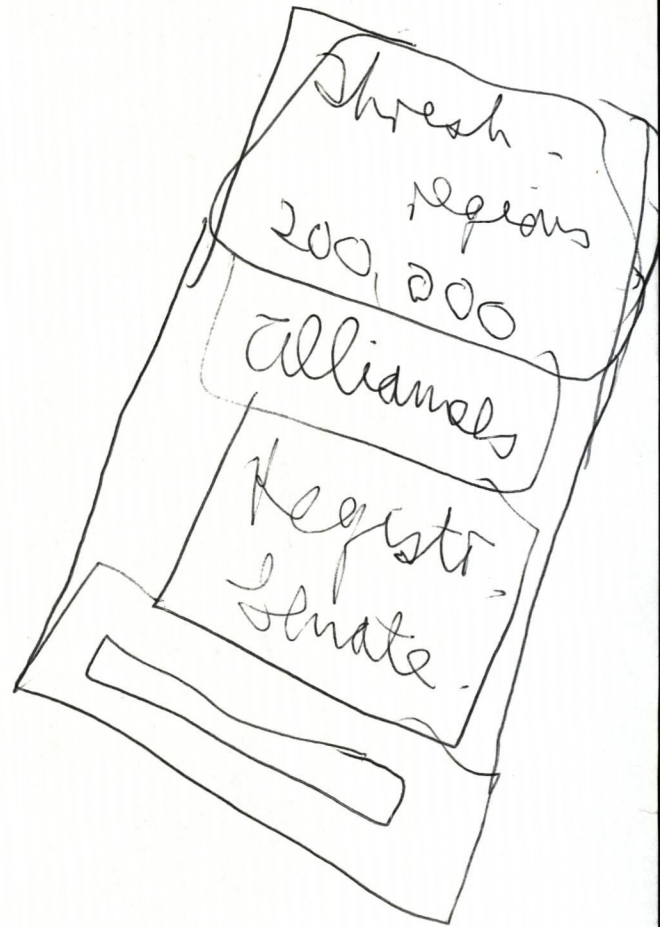 Thresh -
regions
200,000
Alliances
Registr.
Senate.